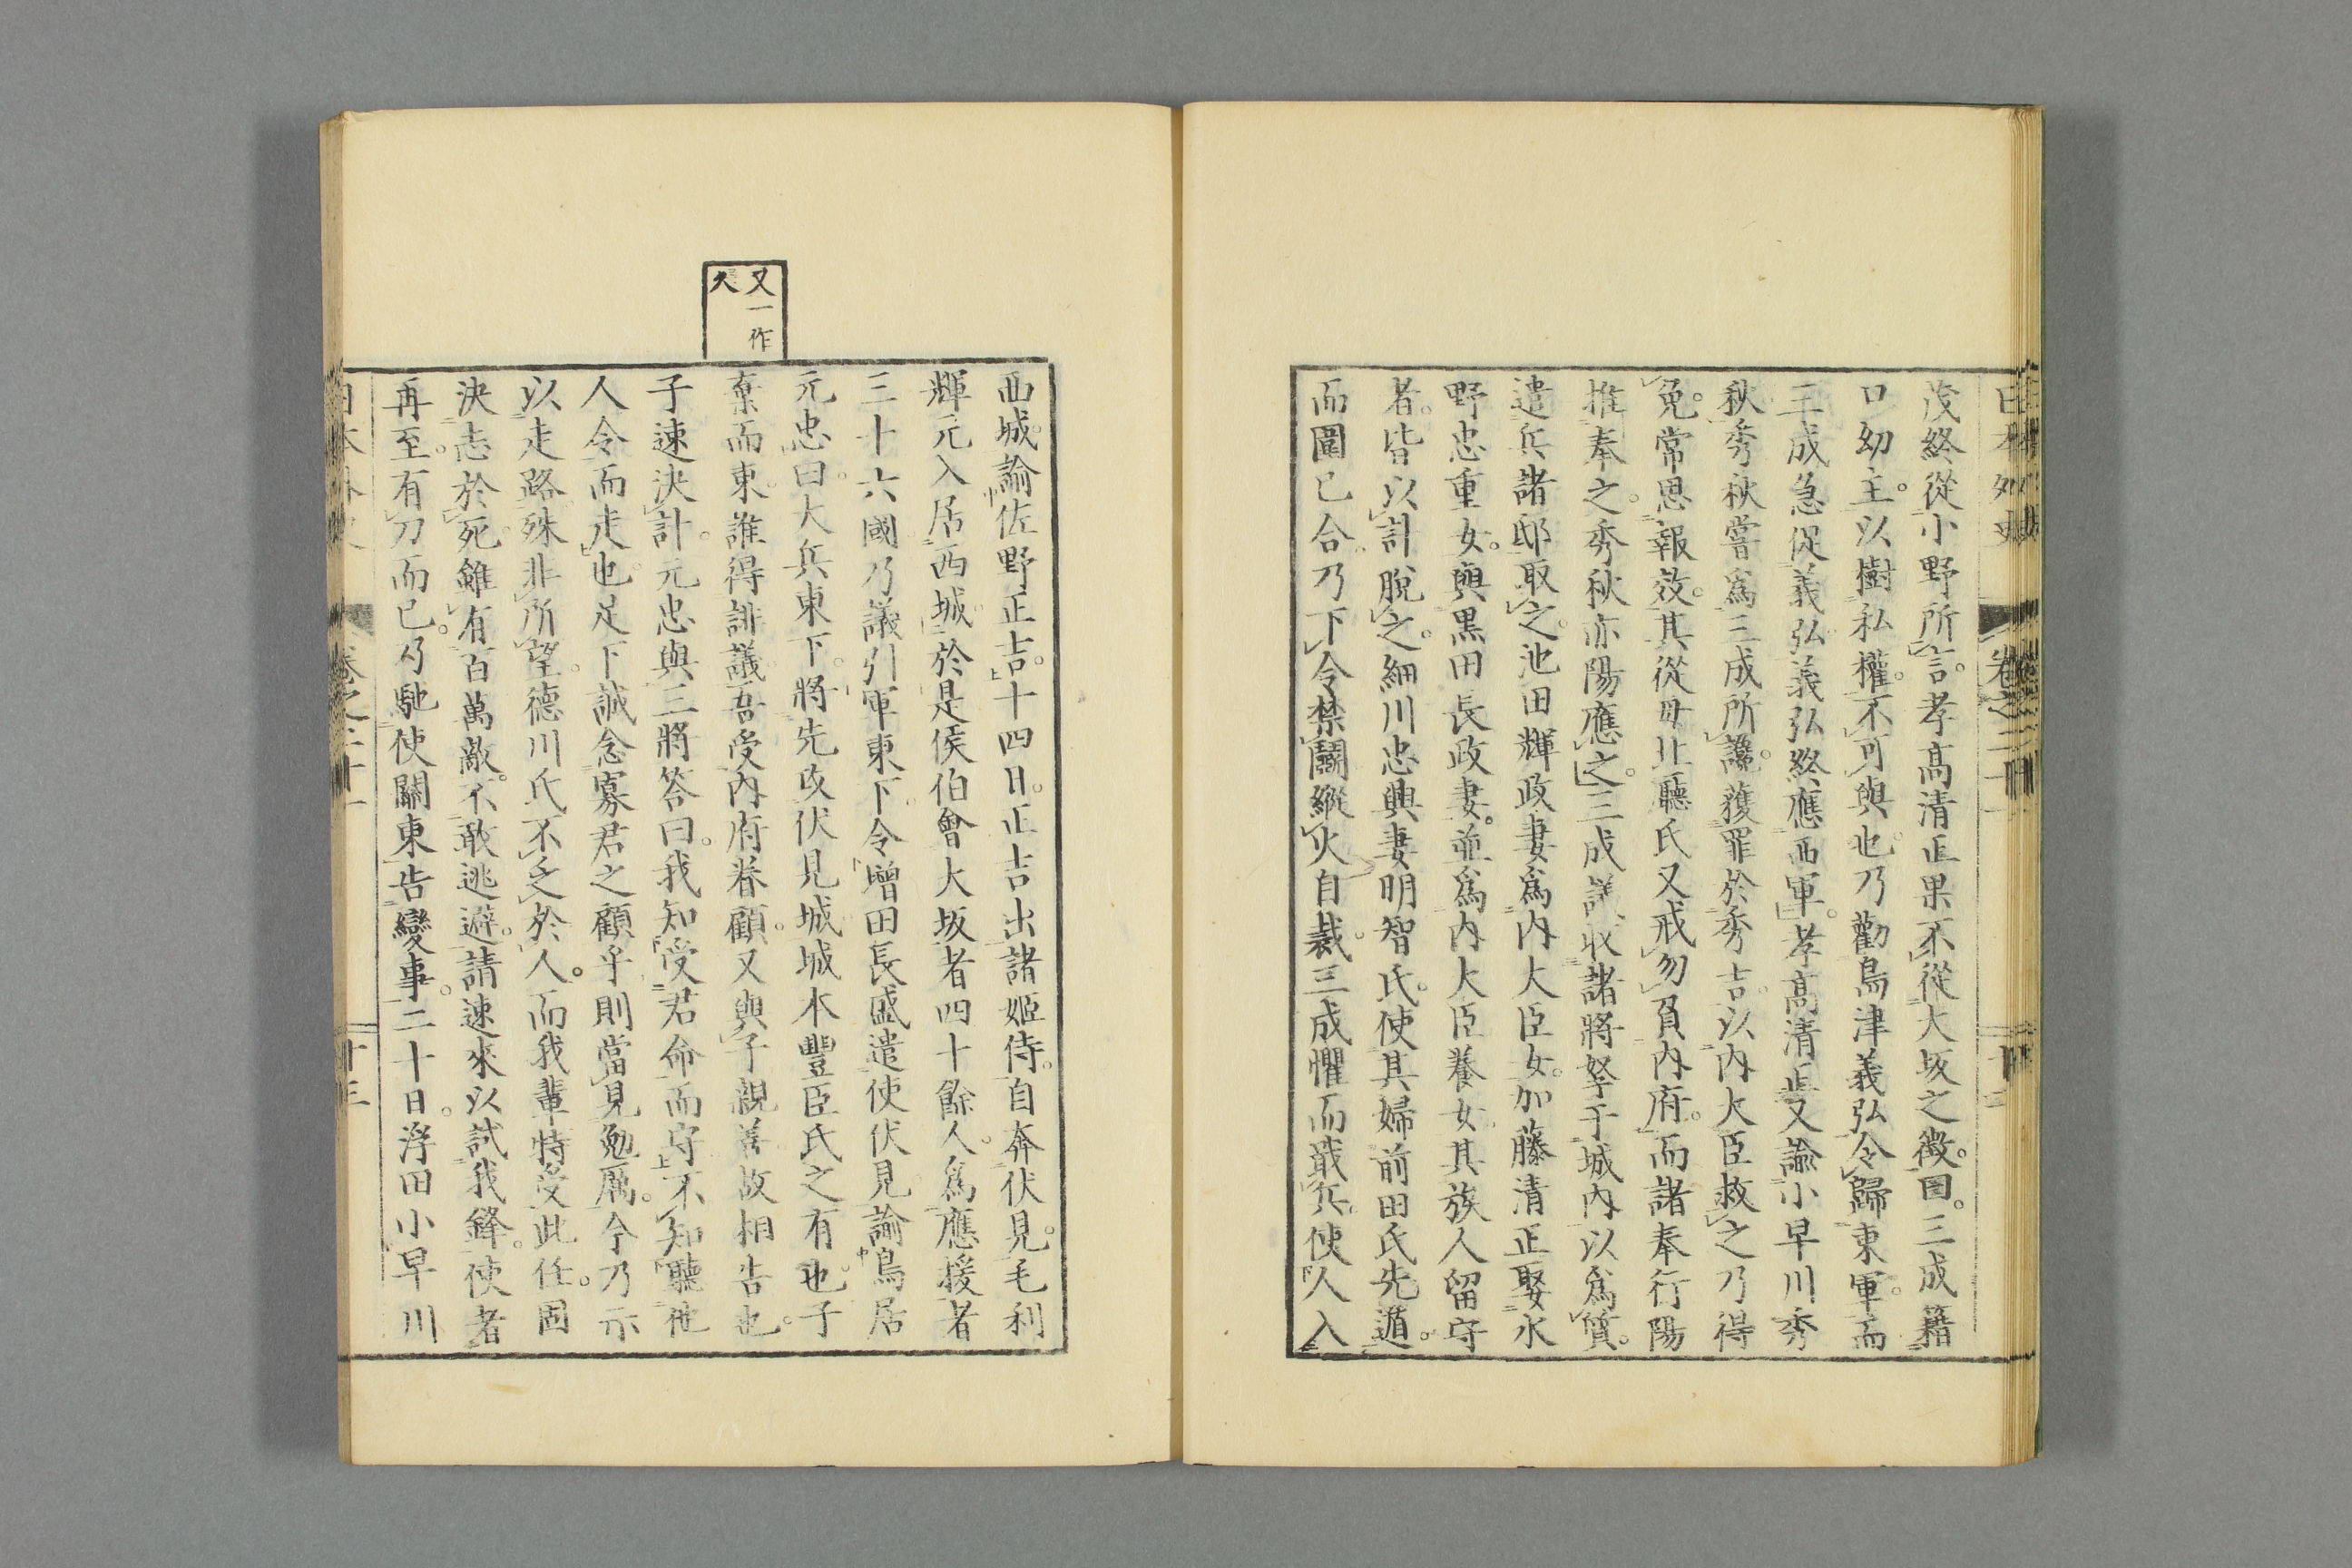 日本外史 卷之二十一
茂終從小野所言。孝高清正果不從大坂之徵。因。三成籍
口幼主。以樹私權。不可與也。乃勸島津義弘。令歸東軍。而
三成急促義弘。義弘終應西軍。孝高清正又諭小早川秀
秋。秀秋嘗爲三成所讒。獲罪於秀吉。以內大臣救之乃得
免。常思報效。其從母北廳氏又戒勿負內府。而諸奉行陽
推奉之。秀秋亦陽應之。三成謀收諸將孥于城內以爲質。
遣兵諸邸取之。池田輝政妻爲內大臣女。加藤清正娶水
野忠重女。與黑田長政妻。並爲內大臣養女。其族人留守
者。皆以計脫之。細川忠興妻明智氏。使其婦前田氏先遁。
而圍已合。乃下令禁鬪。縱火自裁。三成懼而戢兵。使人入
又一作
大
西城。諭佐野正吉。十四日。正吉出諸姬侍。自奔伏見。毛利
輝元入居西城。於是侯伯會大坂者四十餘人。爲應援者
三十六國。乃議引軍東下。令增田長盛遣使伏見。諭鳥居
元忠曰。大兵東下。將先攻伏見城。城本豐臣氏之有也。子
棄而東。誰得誹議。吾受內府眷顧。又與子親善。故相告也。
子速決計。元忠與三將答曰。我知受君命而守。不知聽他
人令而走也。足下誠念寡君之顧乎。則當見勉厲。今乃示
以走路。殊非所望。德川氏不乏於人。而我輩特受此任。固
決志於死。雖有百萬敵。不敢逃避。請速來以試我鋒。使者
再至。有刀而已。乃馳使關東告變事。二十日。浮田小早川
日本外史 卷之二十一 十三